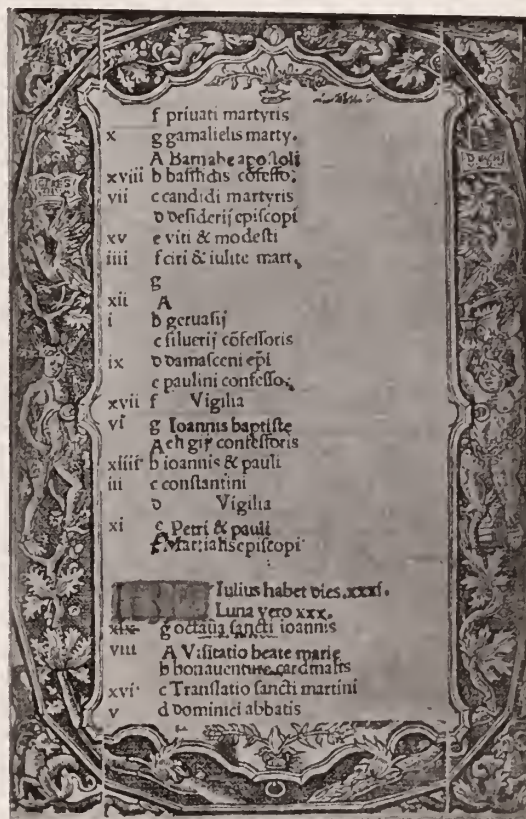 f priuati martyris
x g gamalielis marty.
A Barnabe apostoli
xviii b basilidis cōfesso:
vii c candidi martyris
d desiderij episcopi
xv e viti & modesti
iiii f ciri & iulite mart.
g
xii A
i b geruasij
c siluerij cōfessoris
ix d damasceni ep̄i
e paulini confesso:
xvii f Vigilia
vi g Ioannis baptiste
A confessoris
xiiii b ioannis & pauli
iii c constantini
d Vigilia
xi e Petri & pauli
f Martialis episcopi
Iulius habet dies .xxxi.
Luna vero xxx.
xix g octaua sancti ioannis
viii A Visitatio beate marie
b bonauenture cardinalis
xvi c Translatio sancti martini
v d dominici abbatis